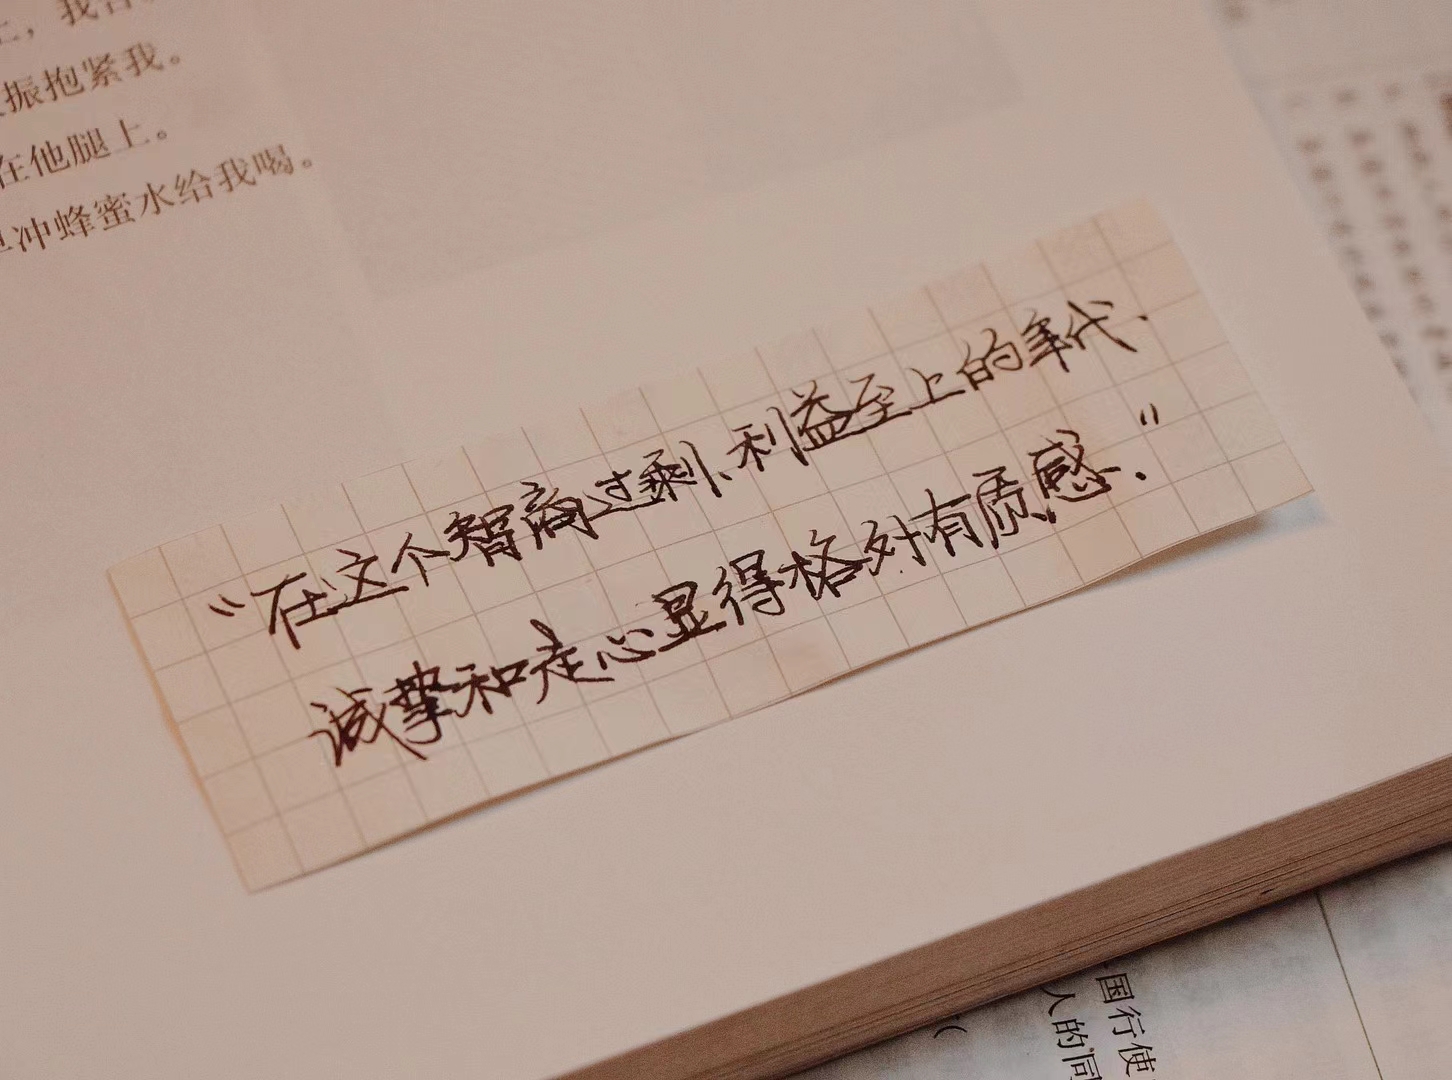 上，我
振抱紧我。
在他腿上。
冲蜂蜜水给我喝。
“在这个智商过剩、利益至上的年代.
诚挚和走心显得格外有质感.”
国行使
人的同